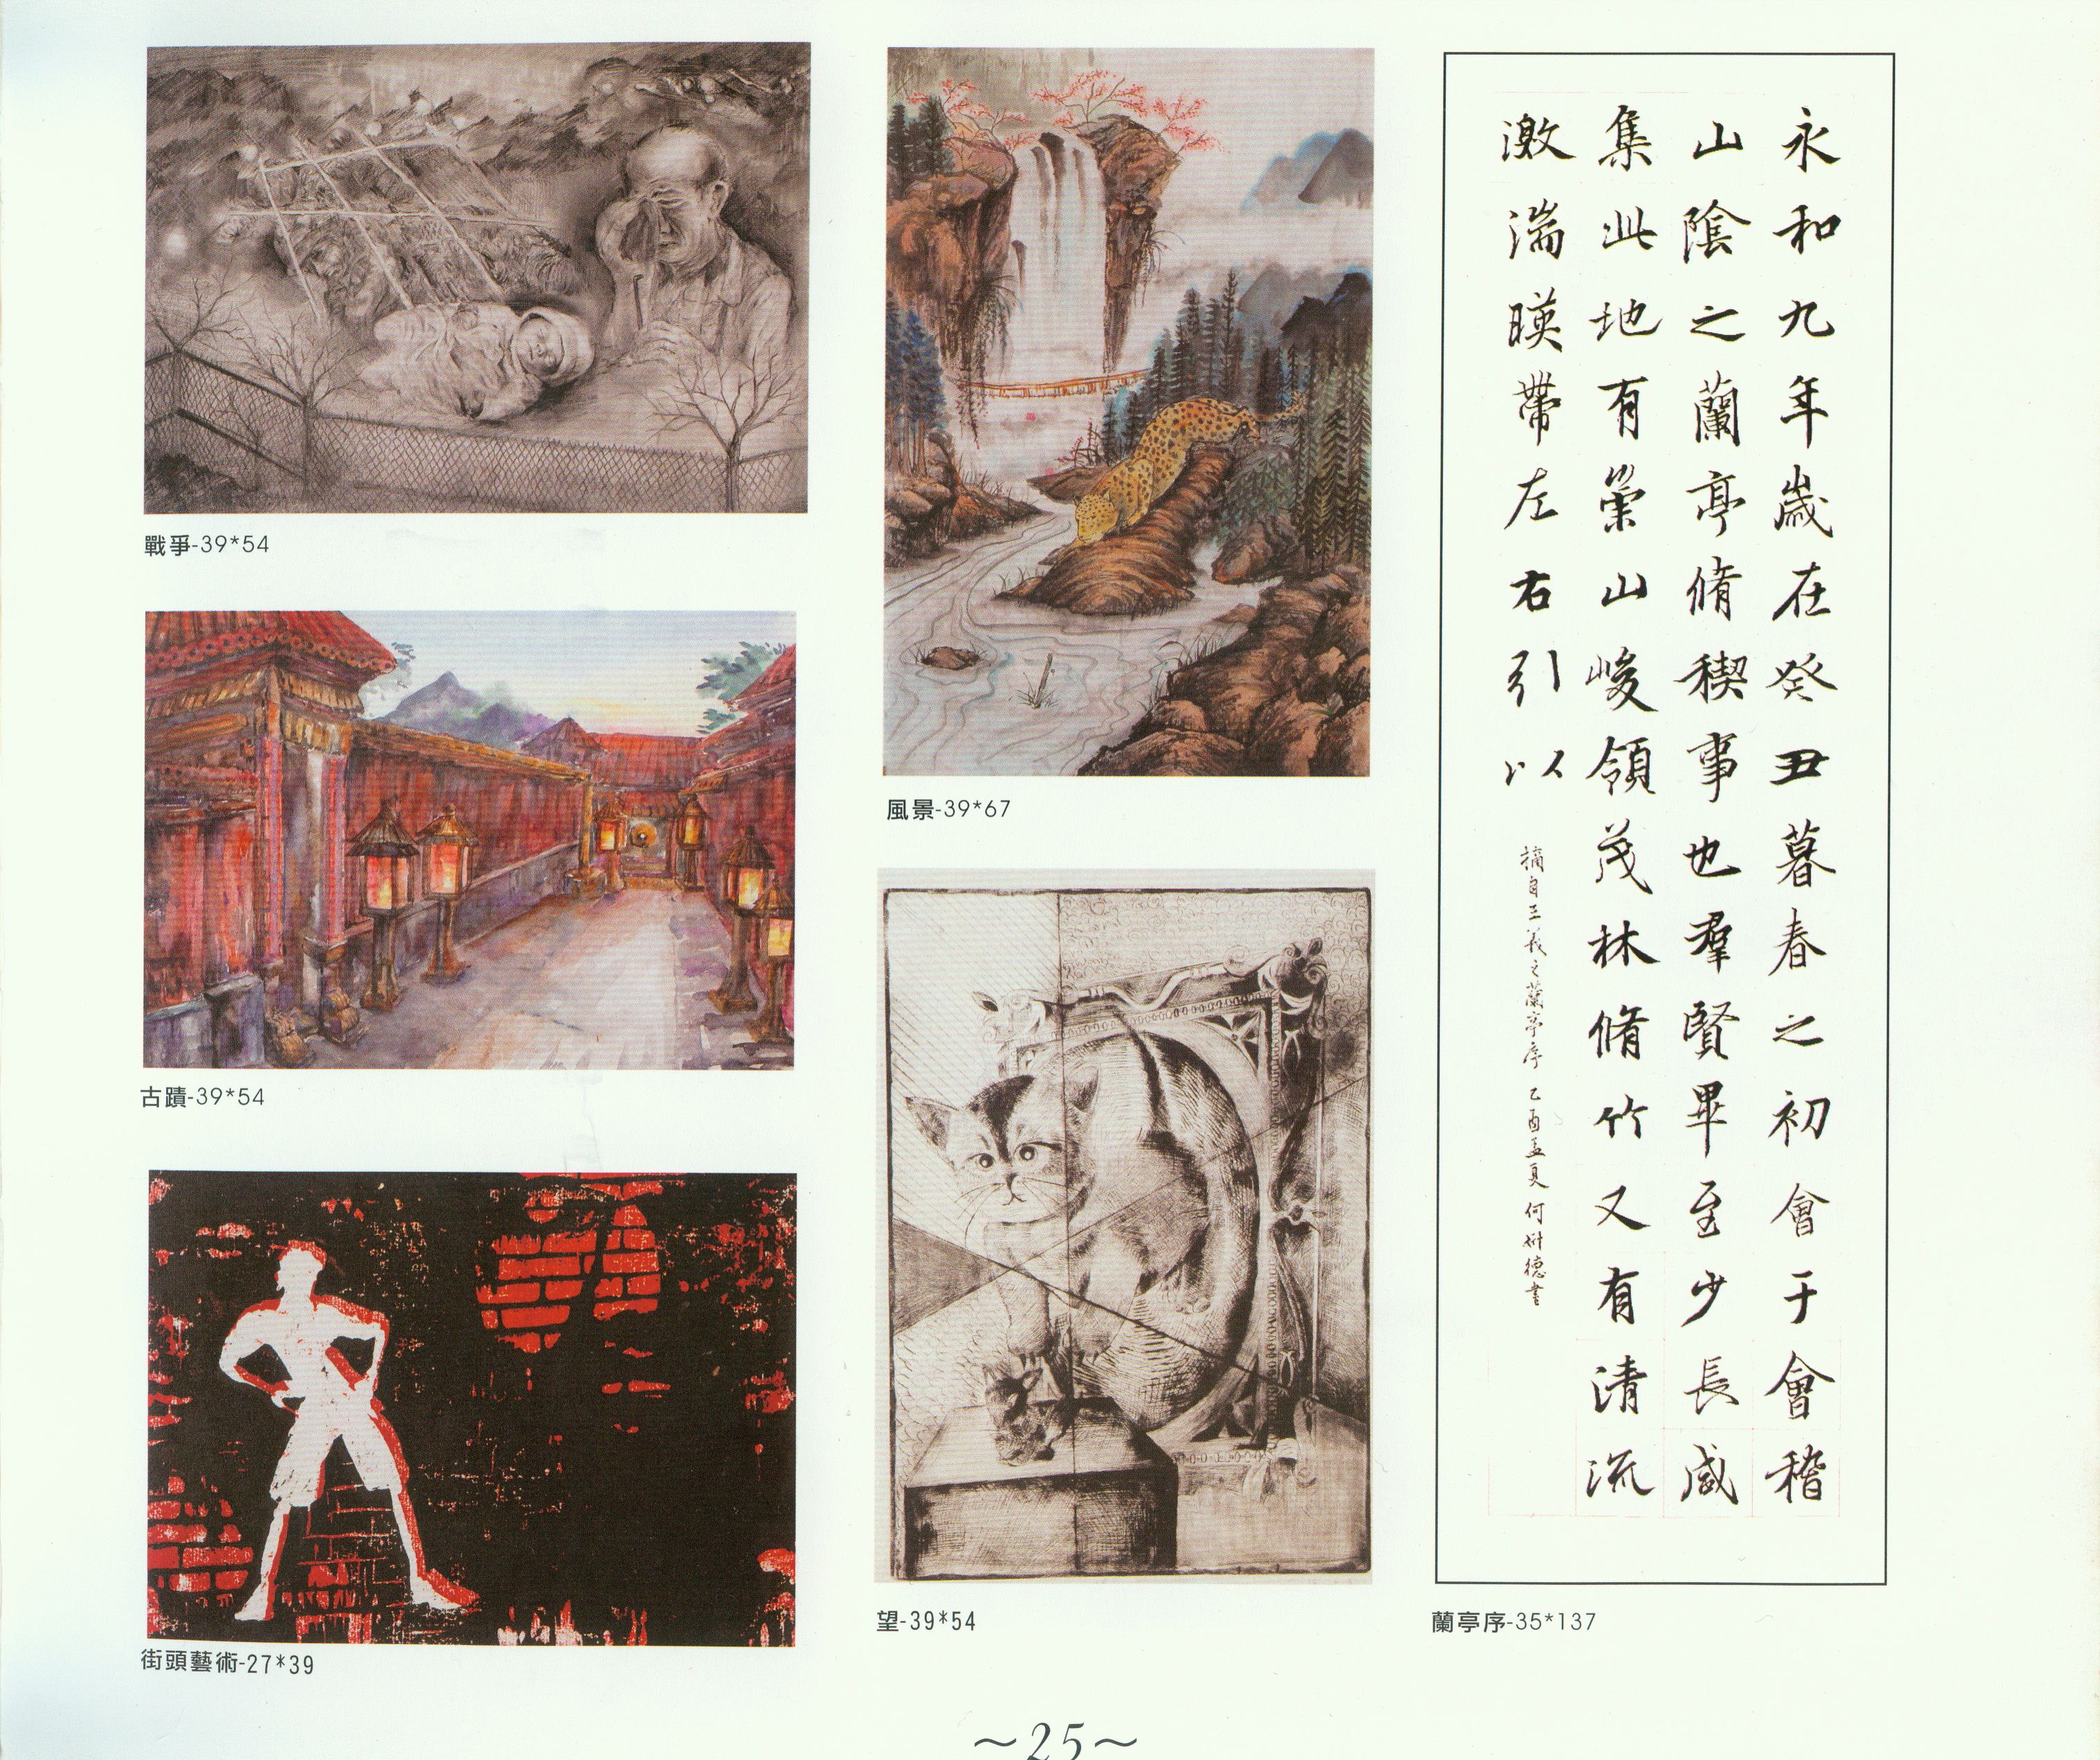 戰爭-39*54
古蹟-39*54
街頭藝術-27*39
風景-39*67
望-39*54
永和九年歲在癸丑暮春之初會于會稽
山陰之蘭亭脩稧事也羣賢畢至少長咸
集此地有崇山峻領茂林脩竹又有清流
激湍暎帶左右引以
摘自王羲之蘭亭序 乙酉孟夏 何德書
蘭亭序-35*137
~25~